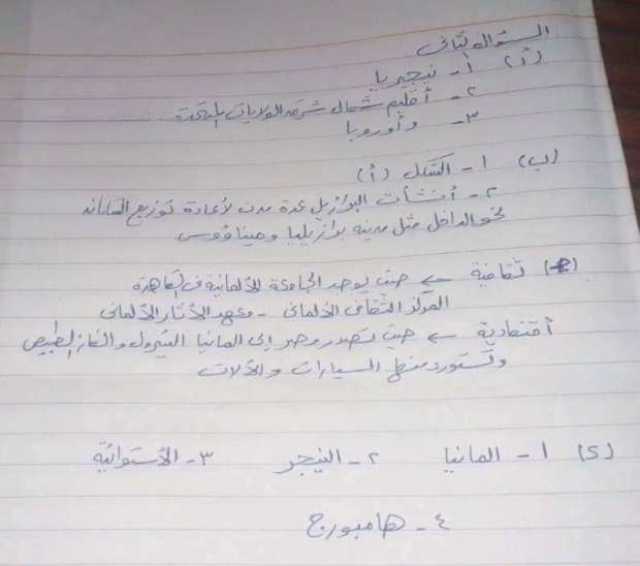 السؤال الثانى
(أ) ١- نيجيريا
٢- أقليم شمال شرق الولايات المتحدة
٣- وأوروبا
(ب) ١- الشكل (أ)
٢- أنشأت البرازيل عدة مدن لأعادة توزيع السكان
نحو الداخل مثل مدينه برازيليا وميناقوس
(جـ) ثقافية ← حيث يوجد الجامعة الألمانية فى القاهرة
المركز الثقافى الألمانى - ومعهد الأثار الألمانى
أقتصادية ← حيث تصدر مصر إلى المانيا البترول والغاز الطبيعى
وتستورد منها السيارات والألات
(د) ١- المانيا ٢- النيجر ٣- الأستوائية
٤- هامبورج